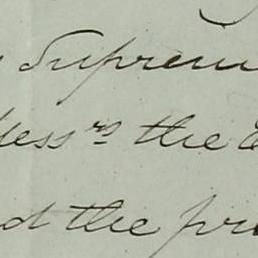 Suprem
Mess rs the
d the pr